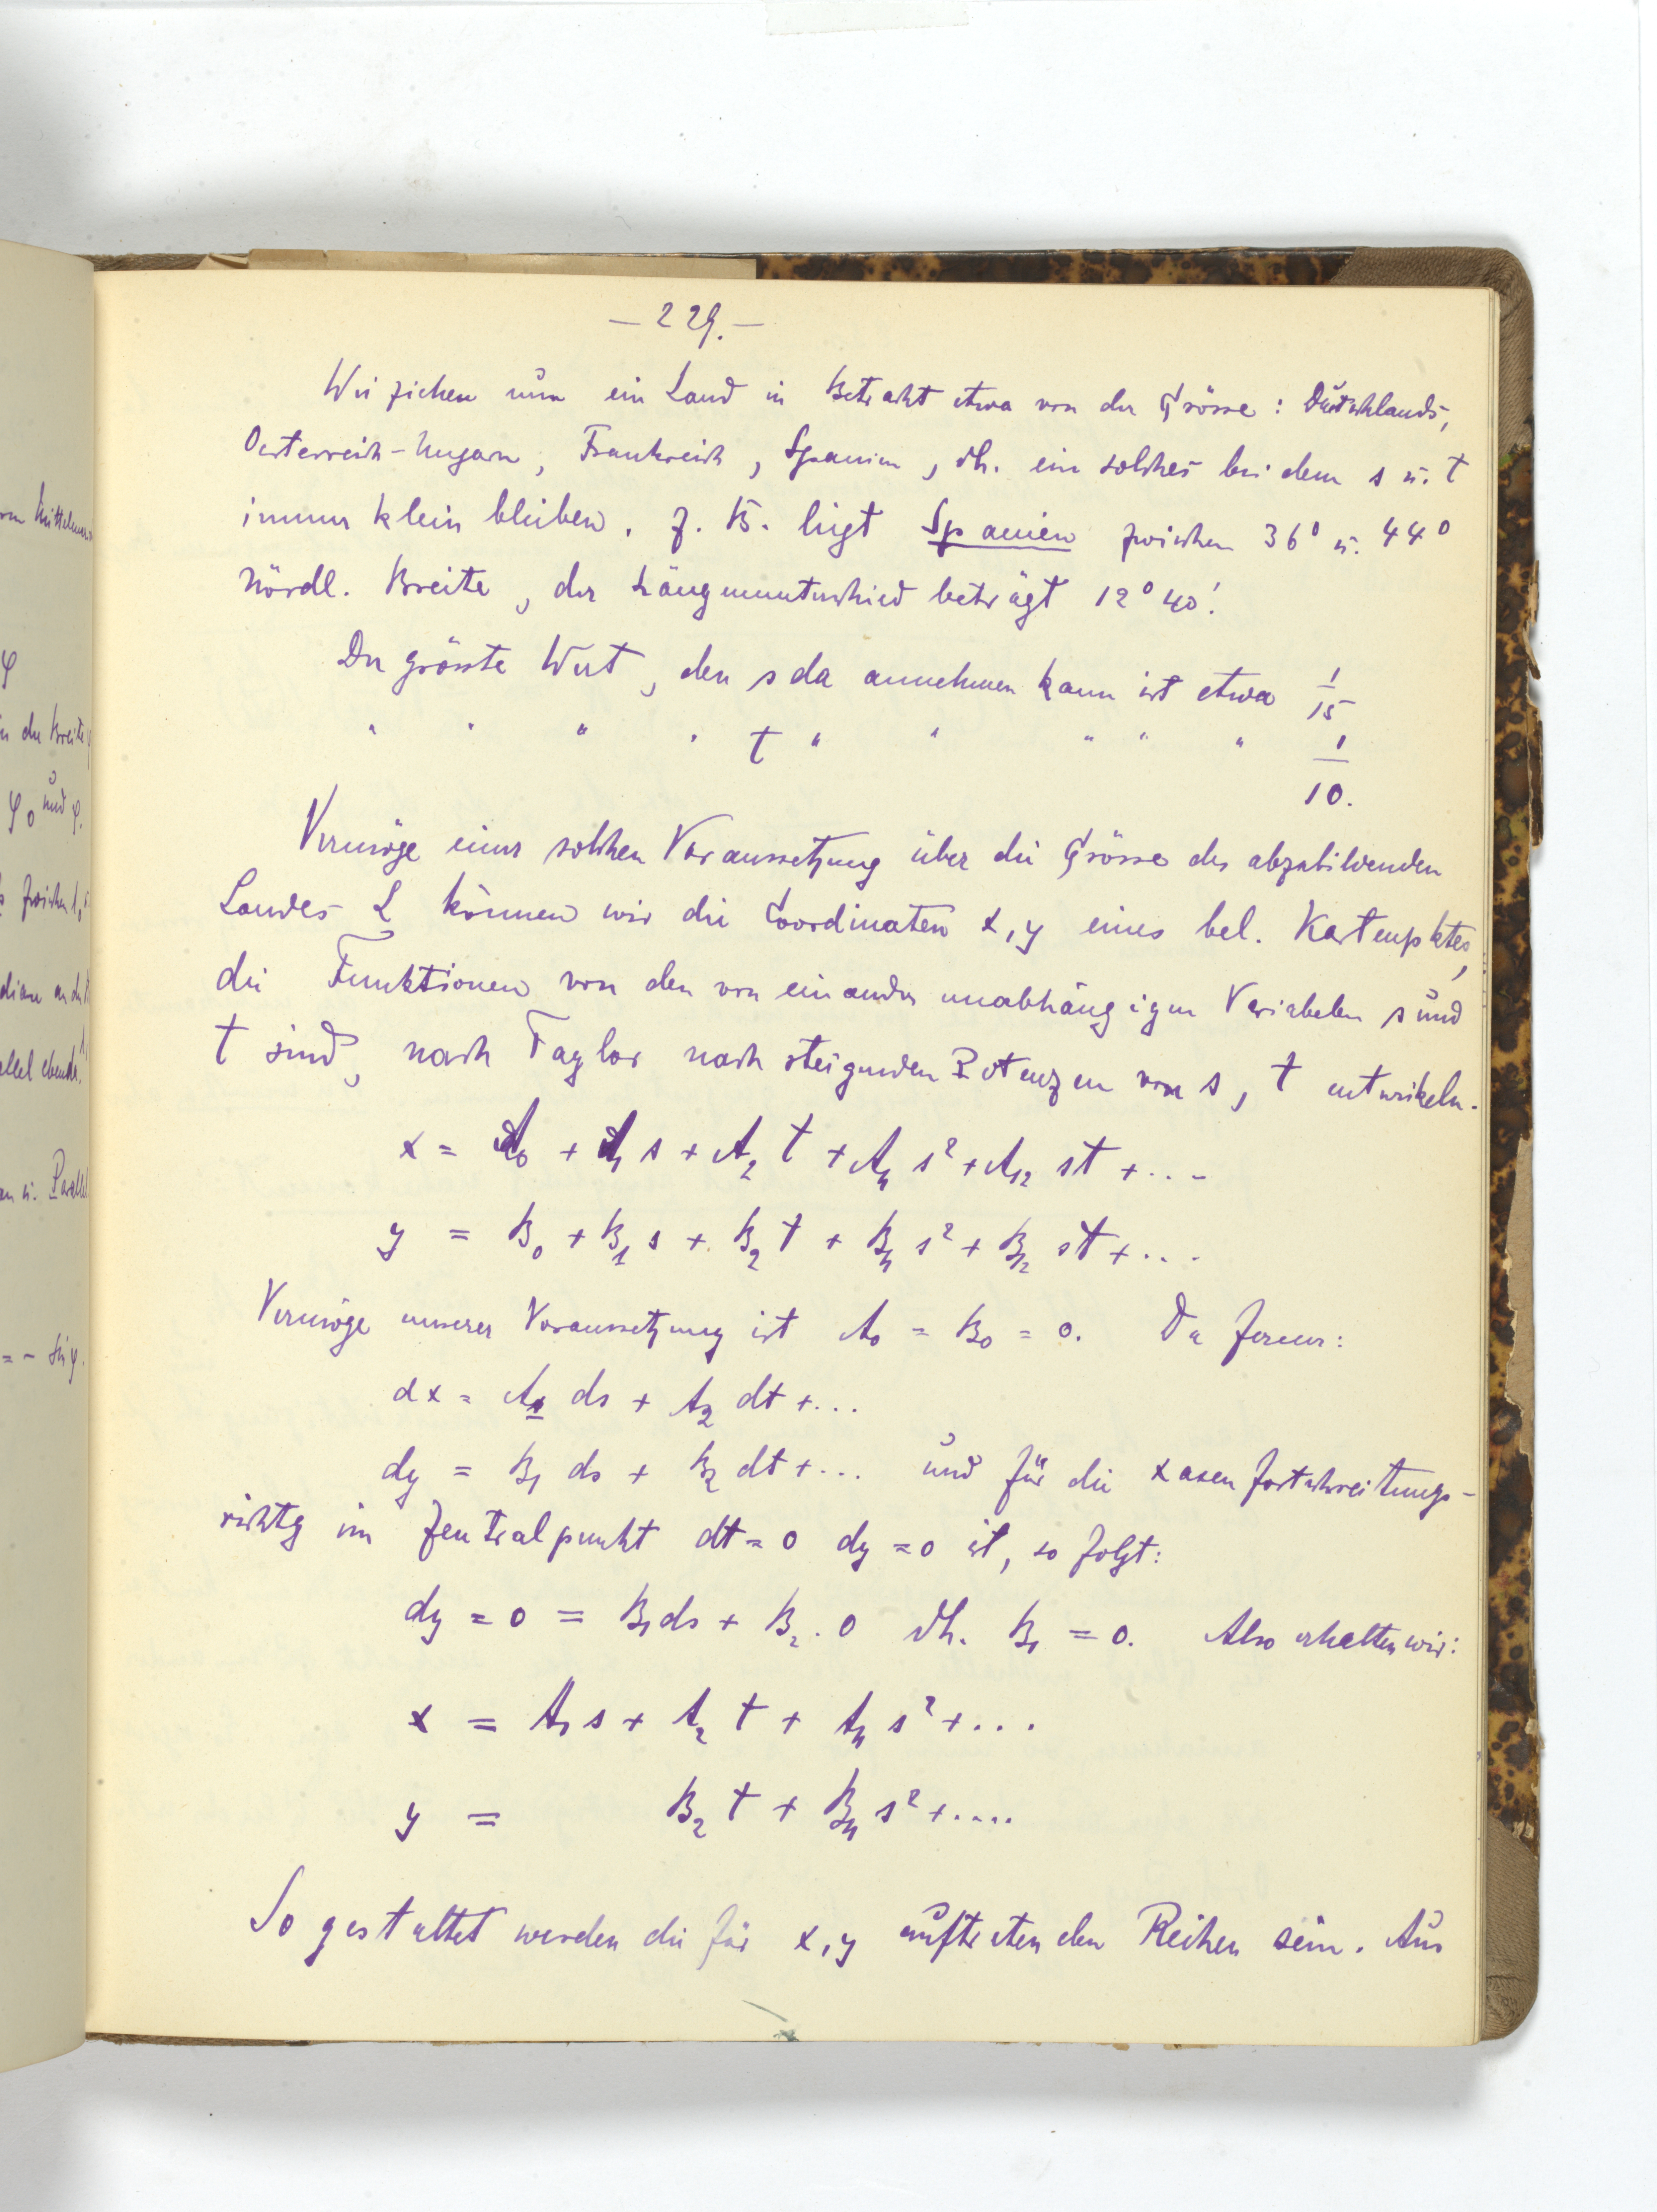 — 229. —
Wir ziehen nun ein Land in Betracht etwa von der Grösse: Deutschlands,
Oesterreich-Ungarn, Frankreich, Spanien, dh. ein solches bei dem s u. t
immer klein bleiben. Z. B. liegt Spanien zwischen 36° u. 44°
nördl. Breite, der Längenunterschied beträgt 12° 40'.
Der grösste Wert, den s da annehmen kann ist etwa 1/15
" " " " t " " " " " 1/10.
Vermöge einer solchen Voraussetzung über die Grösse des abzubildenden
Landes L können wir die Coordinaten x, y eines bel. Kartenpktes,
die Funktionen von den von einander unabhängigen Variabelen s und
t sind, nach Taylor nach steigenden Potenzen von s, t entwickeln.
x = A₀ + A₁ s + A₂ t + A₁₁ s² + A₁₂ st + ...
y = B₀ + B₁ s + B₂ t + B₁₁ s² + B₁₂ st + ...
Vermöge unserer Voraussetzung ist A₀ = B₀ = 0. Da ferner:
dx = A₁ ds + A₂ dt + ...
dy = B₁ ds + B₂ dt + ... und für die x axen fortschreitungs-
richtg im Zentralpunkt dt = 0 dy = 0 ist, so folgt:
dy = 0 = B₁ ds + B₂ . 0 dh. B₁ = 0. Also erhalten wir:
x = A₁ s + A₂ t + A₁₁ s² + ...
y = B₂ t + B₁₁ s² + ....
So gestaltet werden die für x, y auftretenden Reihen sein. Aus